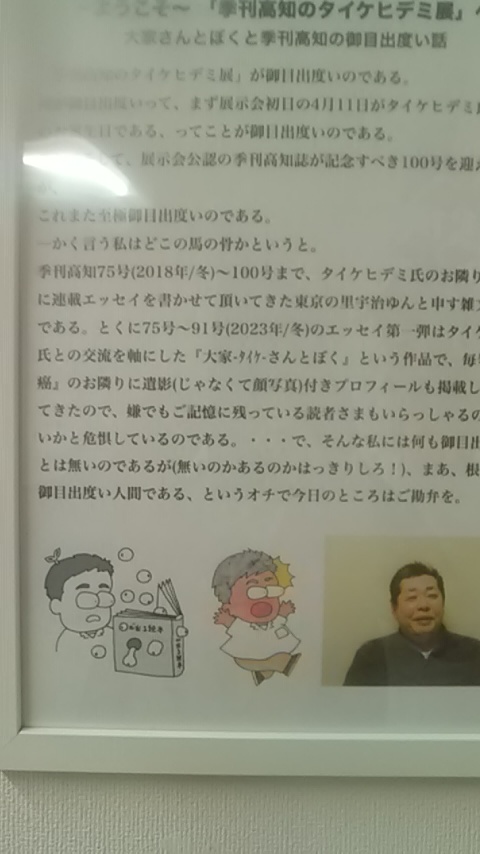 ようこそ〜 「季刊高知のタイケヒデミ展」へ
大家さんとぼくと季刊高知の御目出度い話
のタイケヒデミ展」が御目出度いのである。
御目出度いって、まず展示会初日の4月11日がタイケヒデミ
である、ってことが御目出度いのである。
して、展示会公認の季刊高知誌が記念すべき100号を迎え
が、
これまた至極御目出度いのである。
―かく言う私はどこの馬の骨かというと。
季刊高知75号(2018年/冬)〜100号まで、タイケヒデミ氏のお隣り
に連載エッセイを書かせて頂いてきた東京の里宇治ゆんと申す雑
である。とくに75号〜91号(2023年/冬)のエッセイ第一弾はタイケ
氏との交流を軸にした『大家-ﾀｲｹ-さんとぼく』という作品で、毎
癌』のお隣りに遺影(じゃなくて顔写真)付きプロフィールも掲載し
てきたので、嫌でもご記憶に残っている読者さまもいらっしゃるの
いかと危惧しているのである。・・・で、そんな私には何も御目出
とは無いのであるが(無いのかあるのかはっきりしろ！)、まあ、根
御目出度い人間である、というオチで今日のところはご勘弁を。